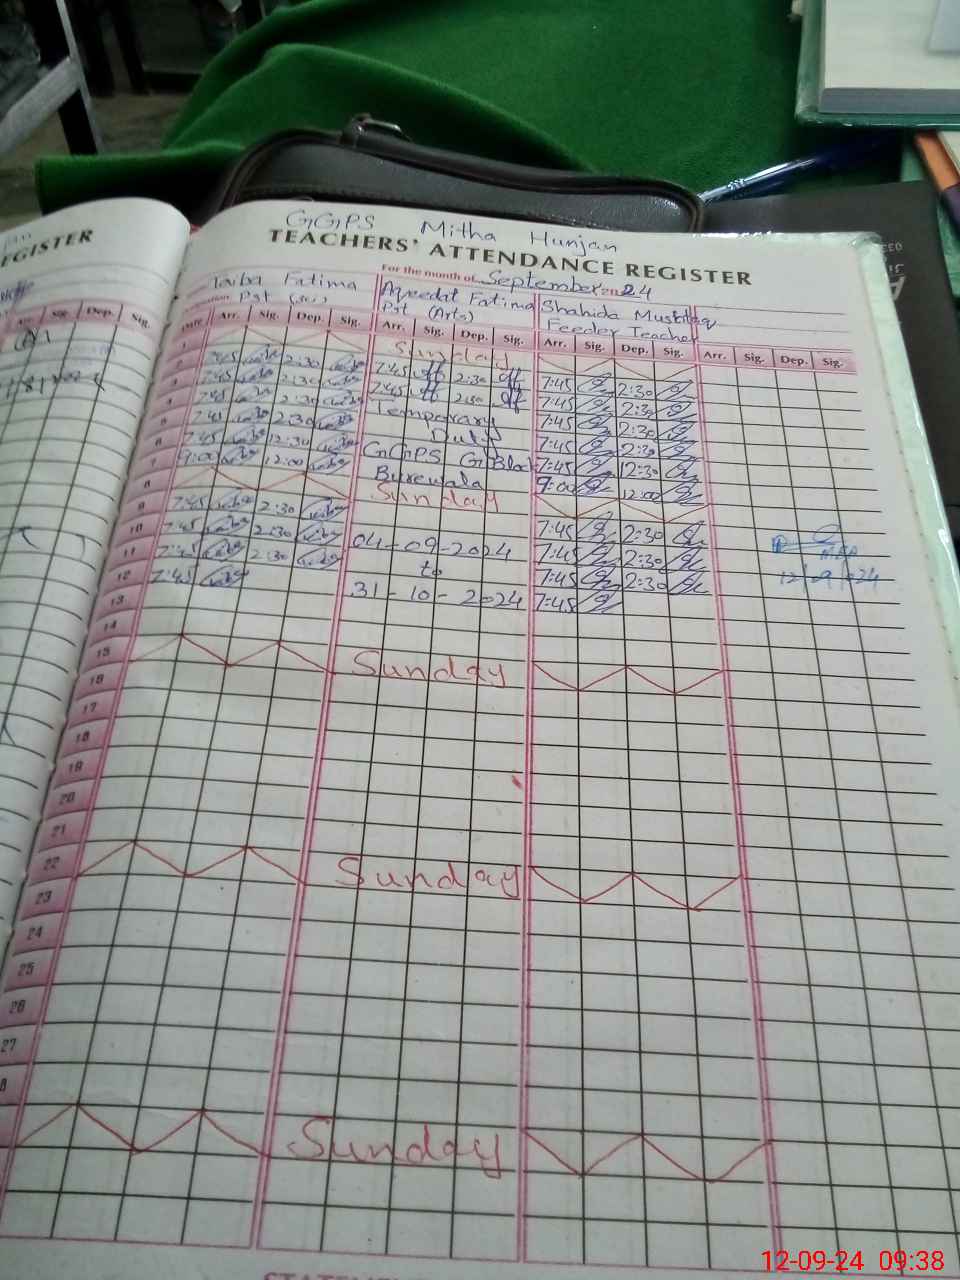 GGPS Mitha Hunjan
EGISTER
TEACHERS' ATTENDANCE REGISTER
For the month of September 2024
Taiba Fatima Aqeedat Fatima Shahida Mushtaq
Pst (sci) Pst (Arts) Feeder Teacher
Dep. Sig. Arr. Sig. Dep. Sig. Arr. Sig. Dep. Sig. Arr. Sig. Dep. Sig. Arr. Sig. Dep. Sig.
1 Sunday
2 7:45 2:30 7:45 2:30 7:45 2:30
3 7:45 2:30 7:45 2:30 7:45 2:30
4 7:45 2:30 Temporary 7:45 2:30
5 7:45 2:30 Duty 7:45 2:30
6 7:45 12:30 GGPS G Block 7:45 12:30
7 9:00 12:00 Burewala 9:00 12:00
8 Sunday
9 7:45 2:30 7:45 2:30
10 7:45 2:30 04-09-2024 7:45 2:30
11 7:45 2:30 to 7:45 2:30
12 7:45 31-10-2024 7:45
12/09/24
13
14
15 Sunday
16
17
18
19
20
21
22 Sunday
23
24
25
26
27
8
Sunday
12-09-24 09:38